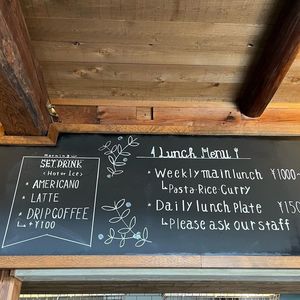 Morning
SET DRINK
(Hot or Ice)
• AMERICANO
• LATTE
• DRIP COFFEE
↳ +¥100
Lunch Menu
• Weekly main lunch ¥1000~
↳ Pasta・Rice・Curry
• Daily lunch plate ¥150
↳ Please ask our staff